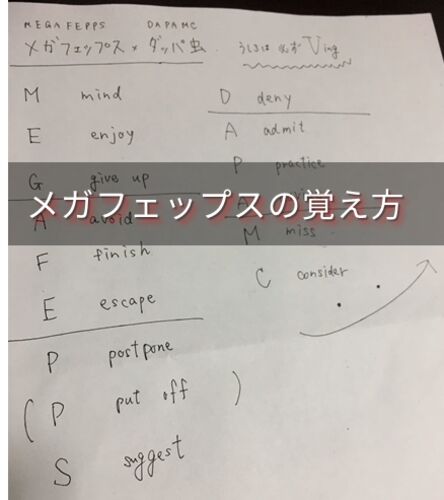 MEGA FEPPS DAPAMC
メガフェップス × ダッパ虫 うしろは 必ず Ving
M mind
E enjoy
G give up
A avoid
F finish
E escape
P postpone
(P put off)
S suggest
D deny
A admit
P practice
A
M miss
C consider
メガフェップスの覚え方